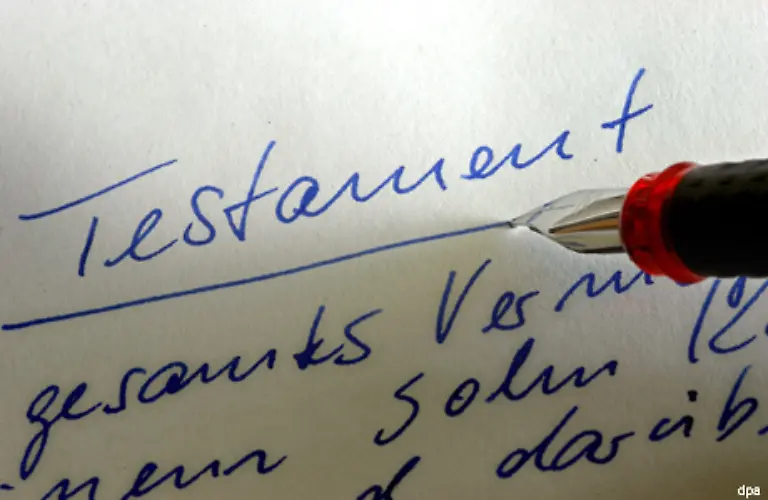 Testament
gesamtes Verm
Sohn
darüb
dpa